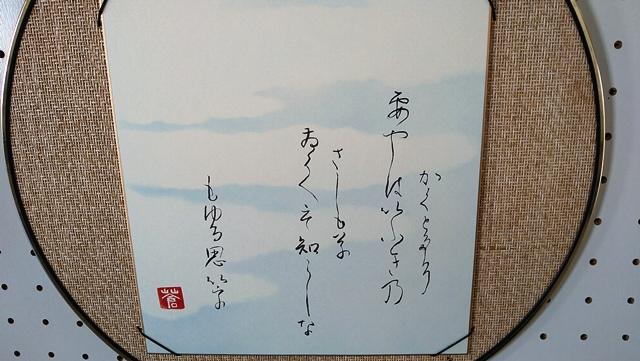 かくとたに
えやはいふき乃
さしも草
さしも知らしな
もゆる思ひを
蒼